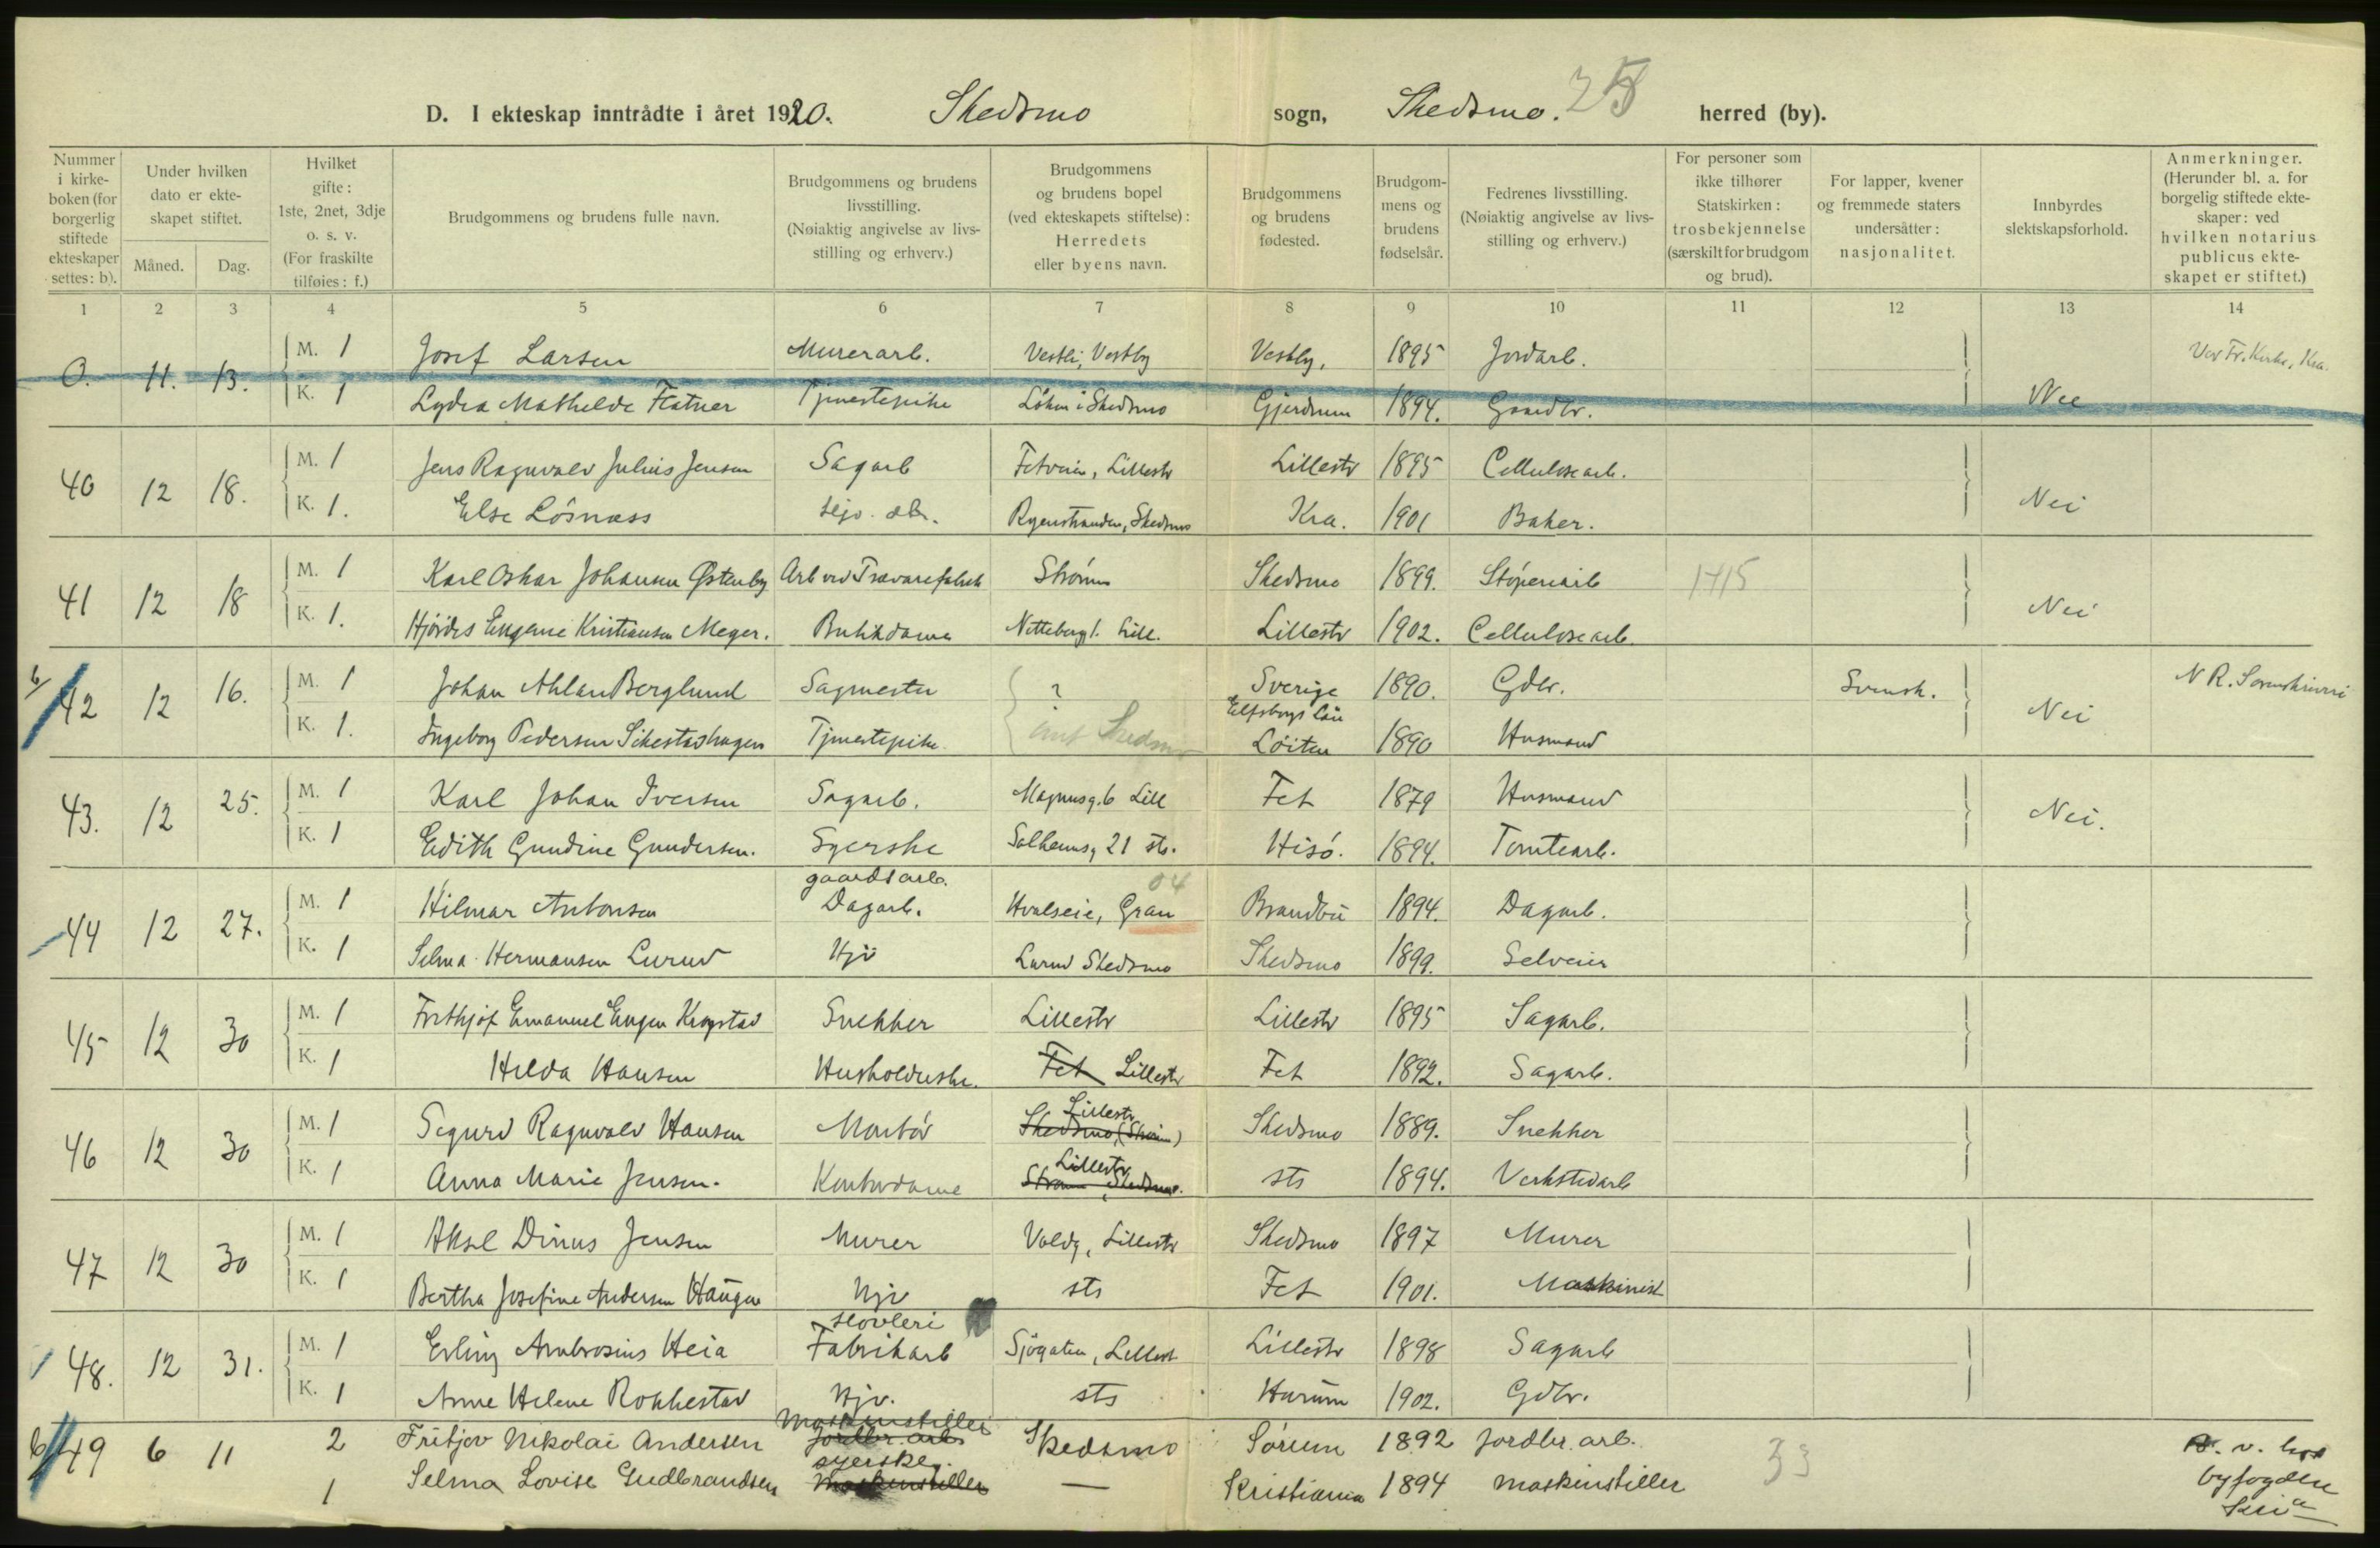 D. I ekteskap inntrådte i året 1920. Skedsmo sogn, Skedsmo. 25 herred (by).
Nummer i kirkeboken (for borgerlig stiftede ekteskaper settes: b).
Under hvilken dato er ekteskapet stiftet.
Måned. Dag.
Hvilket gifte: 1ste, 2net, 3dje o. s. v. (For fraskilte tilføies: f.)
Brudgommens og brudens fulle navn.
Brudgommens og brudens livsstilling. (Nøiaktig angivelse av livsstilling og erhverv.)
Brudgommens og brudens bopel (ved ekteskapets stiftelse): Herredets eller byens navn.
Brudgommens og brudens fødested.
Brudgommens og brudens fødselsår.
Fedrenes livsstilling. (Nøiaktig angivelse av livsstilling og erhverv.)
For personer som ikke tilhører Statskirken: trosbekjennelse (særskilt for brudgom og brud).
For lapper, kvener og fremmede staters undersåtter: nasjonalitet.
Innbyrdes slektskapsforhold.
Anmerkninger. (Herunder bl. a. for borgelig stiftede ekteskaper: ved hvilken notarius publicus ekteskapet er stiftet.)
1 2 3 4 5 6 7 8 9 10 11 12 13 14
0. 11. 13. M. 1 Josef Larsen Murerarb. Vestli, Vestby Vestby, 1895 Jordarb. Vor Fr. Kirke, Kra.
K. 1 Lydia Mathilde Flatner Tjenestepike i Skedsmo Gjerdrum 1894. Gaardbr. Nei
40 12 18. M. 1 Jens Ragnvald Julius Jensen Sagarb Fetveien, Lillestr Lillestr 1895 Cellulosearb.
K. 1. Else Løsnæss Ryenstranden, Skedsmo Kra. 1901 Baker. Nei
41 12 18 M. 1 Karl Oskar Johansen Østenby Arb ved Trævarefabrik Strøm Skedsmo 1899. Støperiarb 1715
K. 1. Hjørdis Eugenie Kristiansen Meyer. Butikdame Nittebergf. Lill. Lillestr 1902. Cellulosearb. Nei
b/ 42 12 16. M. 1 Johan Ahlan Berglund Sagmester ? Sverige Elfsborgs Län 1890. Gdbr. Svensk. N R. Sorenskriveri
K. 1. Ingeborg Pedersen Tjenestepike Skedsmo Løiten 1890 Husmand Nei
43. 12 25. M. 1 Karl Johan Iversen Sagarb. Magnusg. 6 Lill Fet 1879 Husmand
K. 1 Edith Gundine Gundersen. Syerske Solheimsg 21 sts. Hisø. 1894. Tomtearb. Nei.
44 12 27. M. 1 Hilmar Antonsen gaardsarb. Dagarb. Hvalseie, Gran 04 Brandbu 1894. Dagarb.
K. 1 Selma Hermansen Lurud Hjv Lurud Skedsmo Skedsmo 1899. Selveier
45 12 30 M. 1 Frithjof Emanuel Eugen Krogstad Snekker Lillestr Lillestr 1895 Sagarb.
K. 1 Hilda Hansen Husholderske. Fet Lillestr Fet 1892. Sagarb.
46 12 30 M. 1 Sigurd Ragnvald Hansen Montør Lillestr Skedsmo, (Strøm) Skedsmo 1889. Snekker
K. 1 Anna Marie Jensen. Kontordame Lillestr Strøm, Skedsmo. sts 1894. Verkstedarb
47 12 30 M. 1 Aksel Dinus Jensen Murer Voldg, Lillestr Skedsmo 1897 Murer
K. 1 Bertha Josefine Andersen Haugen Hjv sts Fet 1901. Maskinist
48. 12 31. M. 1 Erling Ambrosius Heia høvleri Fabrikarb Sjøgaten, Lillestr Lillestr 1898 Sagarb
K. 1 Anne Helene Rokkestad Hjv. sts Hurum 1902. Gdbr.
b 49 6 11 2 Fritjov Nikolai Andersen Maskinstiller Jordbr. arb. Skedsmo Sørum 1892 Jordbr. arb. 33 B. v. hos byfogden Kria
1 Selma Lovise Gudbrandsen syerske. Maskinstiller — Kristiania 1894 Maskinstiller